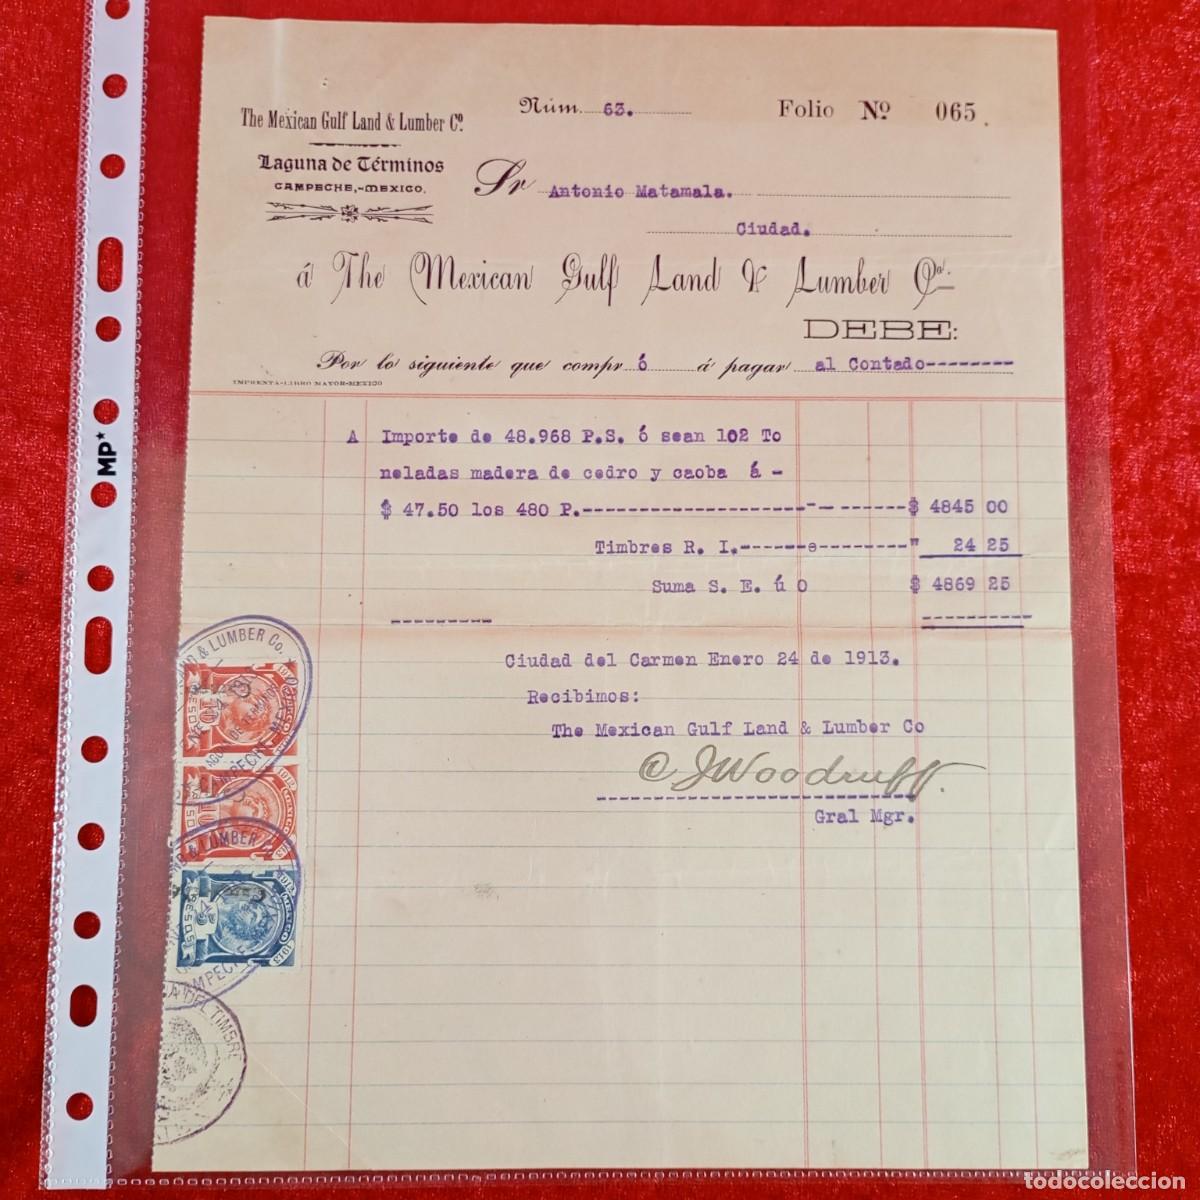 The Mexican Gulf Land & Lumber Cº
Laguna de Términos
CAMPECHE,-MEXICO.
Núm. 63.
Folio Nº 065.
Sr Antonio Matamala.
Ciudad.
á The Mexican Gulf Land & Lumber Co.
DEBE:
Por lo siguiente que compr ó á pagar al Contado--------
IMPRENTA-LIBRO MAYOR-MEXICO
A Importe de 48.968 P.S. ó sean 102 To
neladas madera de cedro y caoba á -
$ 47.50 los 480 P.---------------------- $ 4845 00
Timbres R. I.------e--------" 24 25
Suma S. E. ú O $ 4869 25
Ciudad del Carmen Enero 24 de 1913.
Recibimos:
The Mexican Gulf Land & Lumber Co
C J Woodruff.
Gral Mgr.
& LUMBER Co.
10
PESOS
MEXICO
10
MEXICO
& LUMBER
5
PESOS
MEXICO
1913
CAMPECHE
DEL TIMBRE
MP
todocoleccion